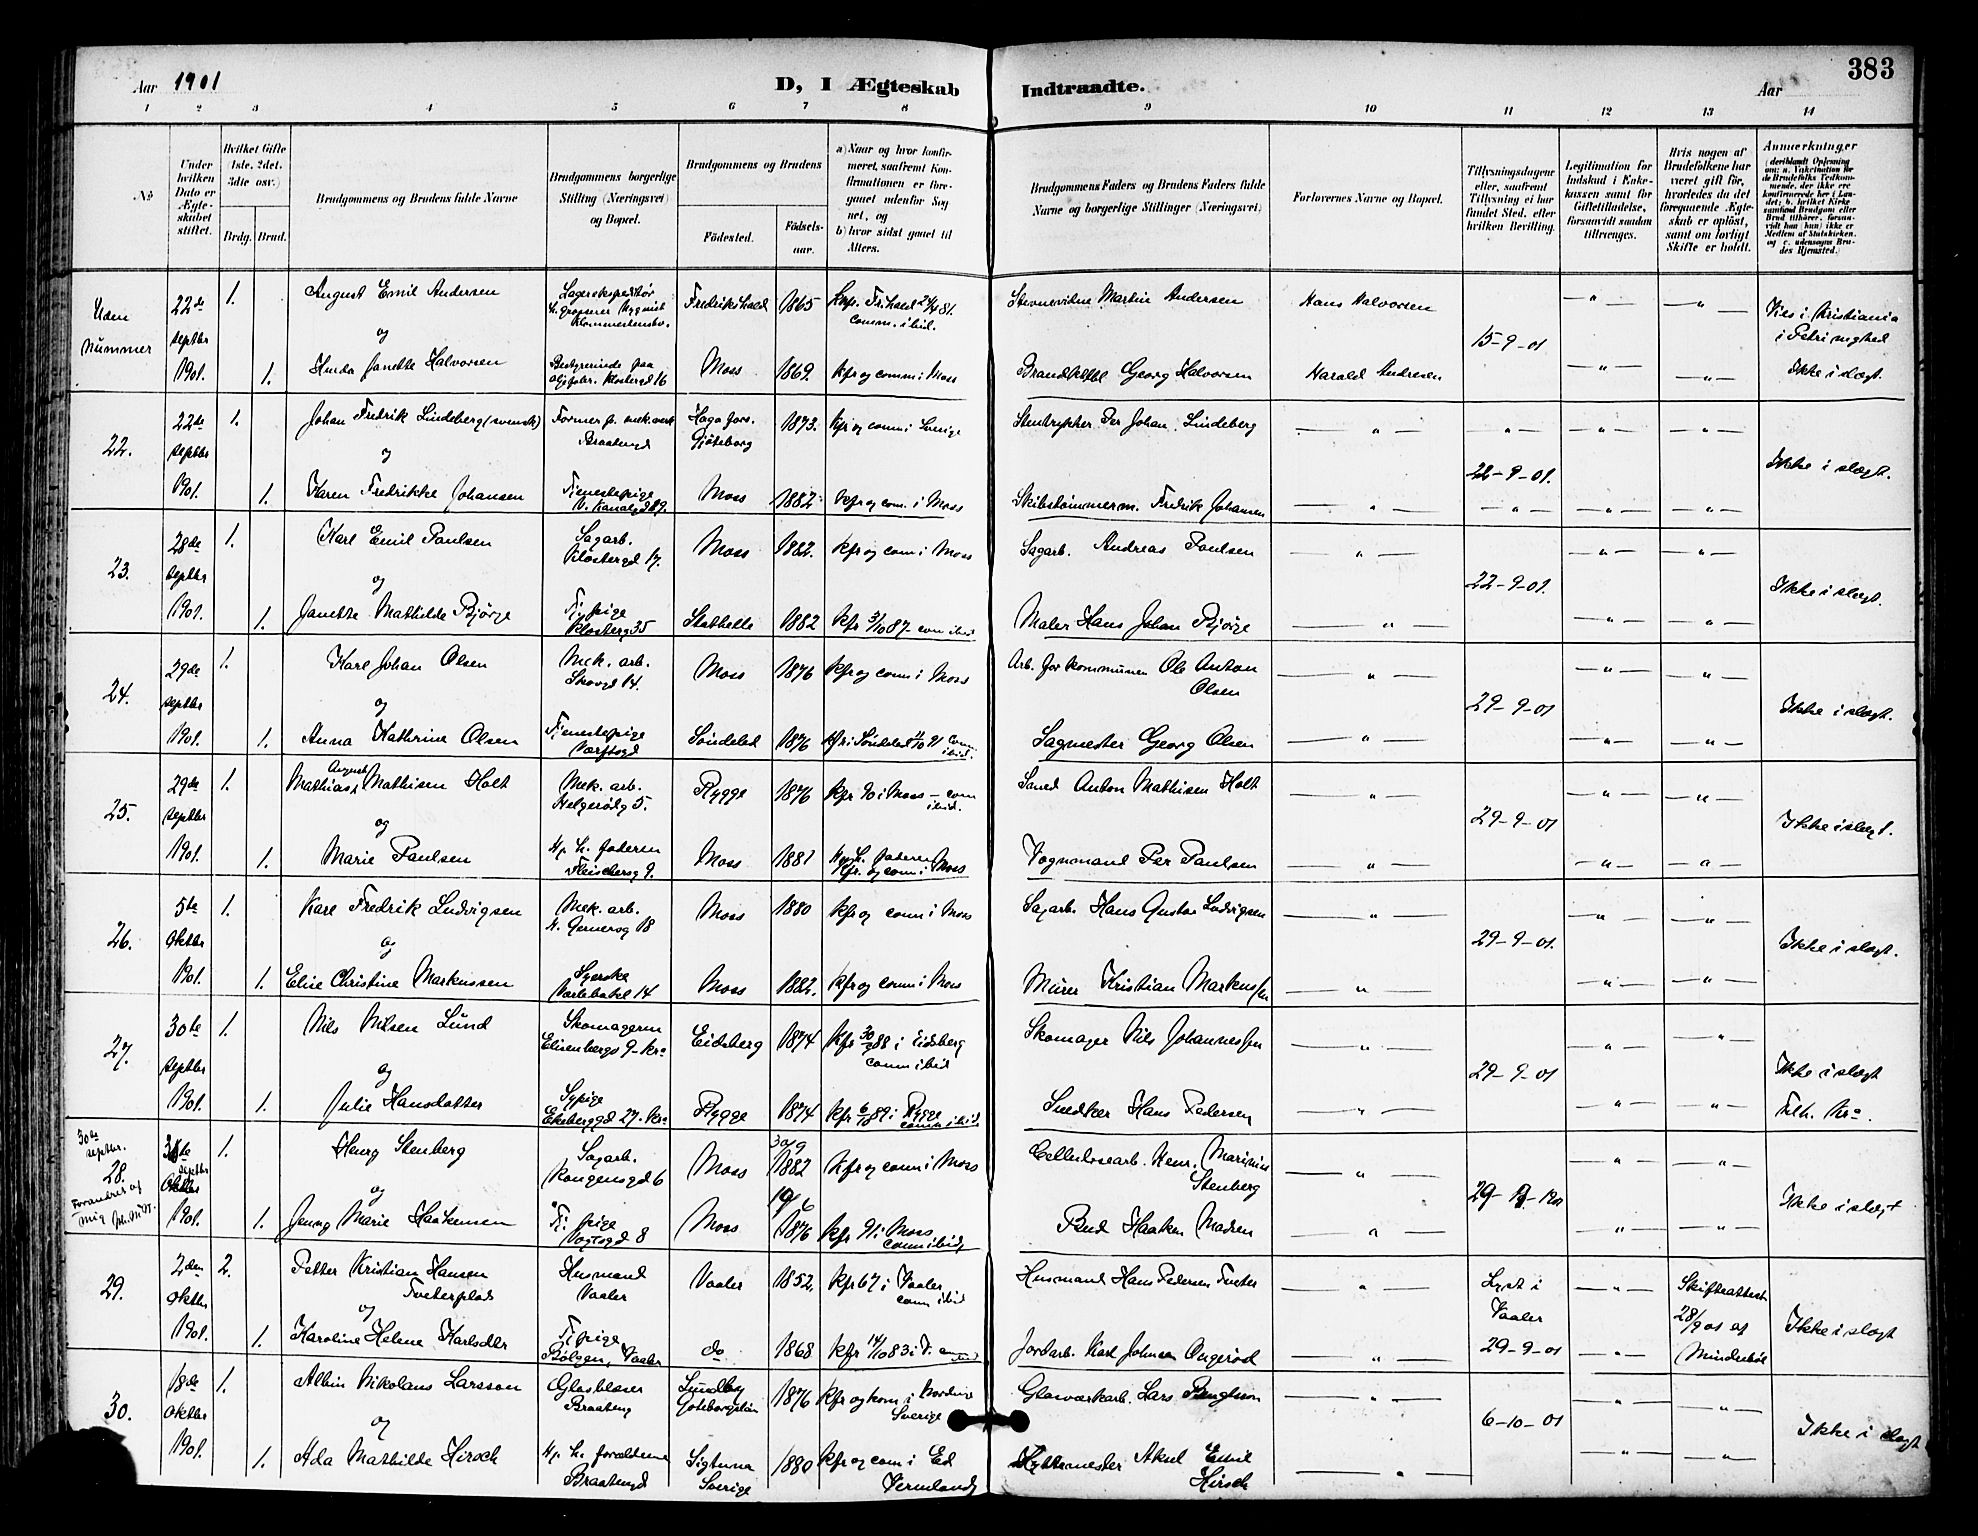 383
Aar 1901
D, I Ægteskab Indtraadte.
Aar
1 2 3 4 5 6 7 8 9 10 11 12 13 14
No.
Under hvilken Dato er Ægteskabet stiftet.
Hvilket Gifte 1ste, 2det, 3die osv.)
Brdg. Brud.
Brudgommens og Brudens fulde Navne
Brudgommens borgerlige Stilling (Næringsvei) og Bopæl.
Brudgommens og Brudens
Fødested.
Fødselsaar.
a) Naar og hvor konfirmeret, saafremt Konfirmationen er foregaaet udenfor Sognet, og
b) hvor sidst gaaet til Alters.
Brudgommens Faders og Brudens Faders fulde Navne og borgerlige Stillinger (Næringsvei)
Forlovernes Navne og Bopæl.
Tillysningsdagene eller, saafremt Tillysning ei har fundet Sted, efter hvilken Bevilling.
Legitimation for Indskud i Enkekassen samt for Giftetilladelse, forsaavidt saadan tiltrænges.
Hvis nogen af Brudefolkene har været gift før, hvorledes da det foregaaende Ægteskab er opløst, samt om lovligt Skifte er holdt.
Anmærkninger
Uden Nummer 22de septbr 1901. 1. August Emil Andersen Fredrikshald 1865 comm. ibid. Martin Andersen Hans Halvorsen 15-9-01 Viet i Kristiania
og
1. Janette Halvorsen Klostergd 16 Moss 1869. kfr og comm i Moss Georg Halvorsen Harald Andresen Ikke i slægt.
22. 22de septbr 1901. 1. Johan Fredrik Lindeberg (svensk) Former p. mek. verk Braatengd Haga fors. Gjøteborg 1873. kfr og comm i Sverige Stentrykker Per Johan Lindeberg 22-9-01. Ikke i slægt.
og
1. Karen Fredrikke Johansen Tjenestepige Moss 1882 kfr og com. i Moss Skibstømmerm. Fredrik Johansen
23. 28de septbr 1901. 1. Karl Emil Paulsen Sagarb. Klostergd 17. Moss 1882. kfr og comm i Moss Sagarb. Andreas Paulsen 22-9-01. Ikke i slægt.
og
1. Janette Mathilde Bjørge Tj. pige Klosterg 35 Stathelle 1882 Maler Hans Johan Bjørge
24. 29de septbr 1901. 1. Karl Johan Olsen Mek. arb. Skovgd 14. Moss 1876 kfr og comm i Moss Arb. for kommunen Ole Anton Olsen 29-9-01 Ikke i slægt.
og
1. Anna Kathrine Olsen Tjenestepige Værftsgd Søndeled 1876 kfr i Søndeled 91 com ibid. Sagmester Georg Olsen
25. 29de septbr 1901. 1. Mathias August Mathisen Holt Mek. arb. Helgerødg 5. Rygge 1876 kfr 90 i Moss – com ibid. Anton Mathisen Holt 29-9-01 Ikke i slægt.
og
1. Marie Paulsen Hj. h. faderen Fleischersg 9. Moss 1881 kfr. og com i Moss Vognmand Per Paulsen
26. 5te Oktbr 1901. 1. Karl Fredrik Ludvigsen Mek. arb. N. Gernersg 18 Moss 1880 kfr og comm i Moss Sagarb. Hans Gustav Ludvigsen 29-9-01. Ikke i slægt.
og
1. Elise Christine Markussen Syerske Varlebakl 14 Moss 1882. kfr og comm i Moss Murer Kristian Markussen
27. 30te septbr 1901. 1. Nils Nilsen Lund Skomagerm Elisenbergv 9 – Kra Eidsberg 1874 kfr 30/9 88 i Eidsberg comm ibid Skomager Nils Johannessen 29-9-01 Ikke i slægt
og
1. Julie Hansdatter Sypige Ekeberggd 27 – Kra Rygge 1874 kfr 6/10 89 i Rygge comm ibid. Snedker Hans Pedersen Tilh. Kra.
30te septbr. 28. Forandret af mig septbr Oktbr 1901. 1. Henry Stenberg Sagarb. Kongensgd 6 Moss 30/9 1882 kfr og comm i Moss Cellulosearb. Henr. Marinius Stenberg Ikke i slægt
og
1. Jenny Marie Haakensen Tj. pige Vogtsgd 8 Moss 19/6 1876 kfr 91 i Moss comm ibid. Bud Haaken Madsen
29. 2den Oktbr 1901. 2. Petter Kristian Hansen Tveterplads Husmand Vaaler Vaaler 1852. kfr 67 i Vaaler comm ibid Husmand Hans Pedersen Tveter Lyst i Vaaler 29-9-01 Skifteattest 28/9 01 af Ikke i slægt
og
1. Karoline Helene Karlsdtr Tj. pige Bølgen, Vaaler do 1868 kfr 14/10 83 i V. Jordarb. Karl Johnsen Ongerød
30. 18de Oktbr 1901. 1. Albin Nikolaus Larsson Glasblæser Braateng Lundby Goteborgslän 1876 kfr og kom i Sverige Glasværkarb. Lars Bengtson 6-10-01 Ikke i slægt
og
1. Ada Mathilde Hirsch Hj. h. forældrene Braatengd Sigtuna Sverige 1880 kfr og com i Ed Vermland Hyttemester Aksel Emil Hirsch